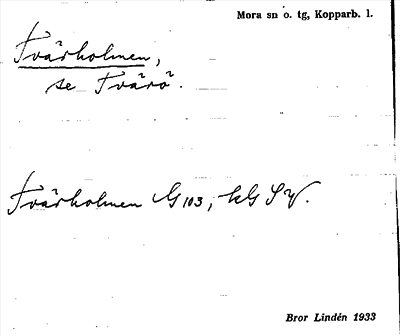 Mora sn o. tg, Kopparb. l.
Tvärholmen,
se Tvärö.
Tvärholmen G 103, kG SV.
Bror Lindén 1933